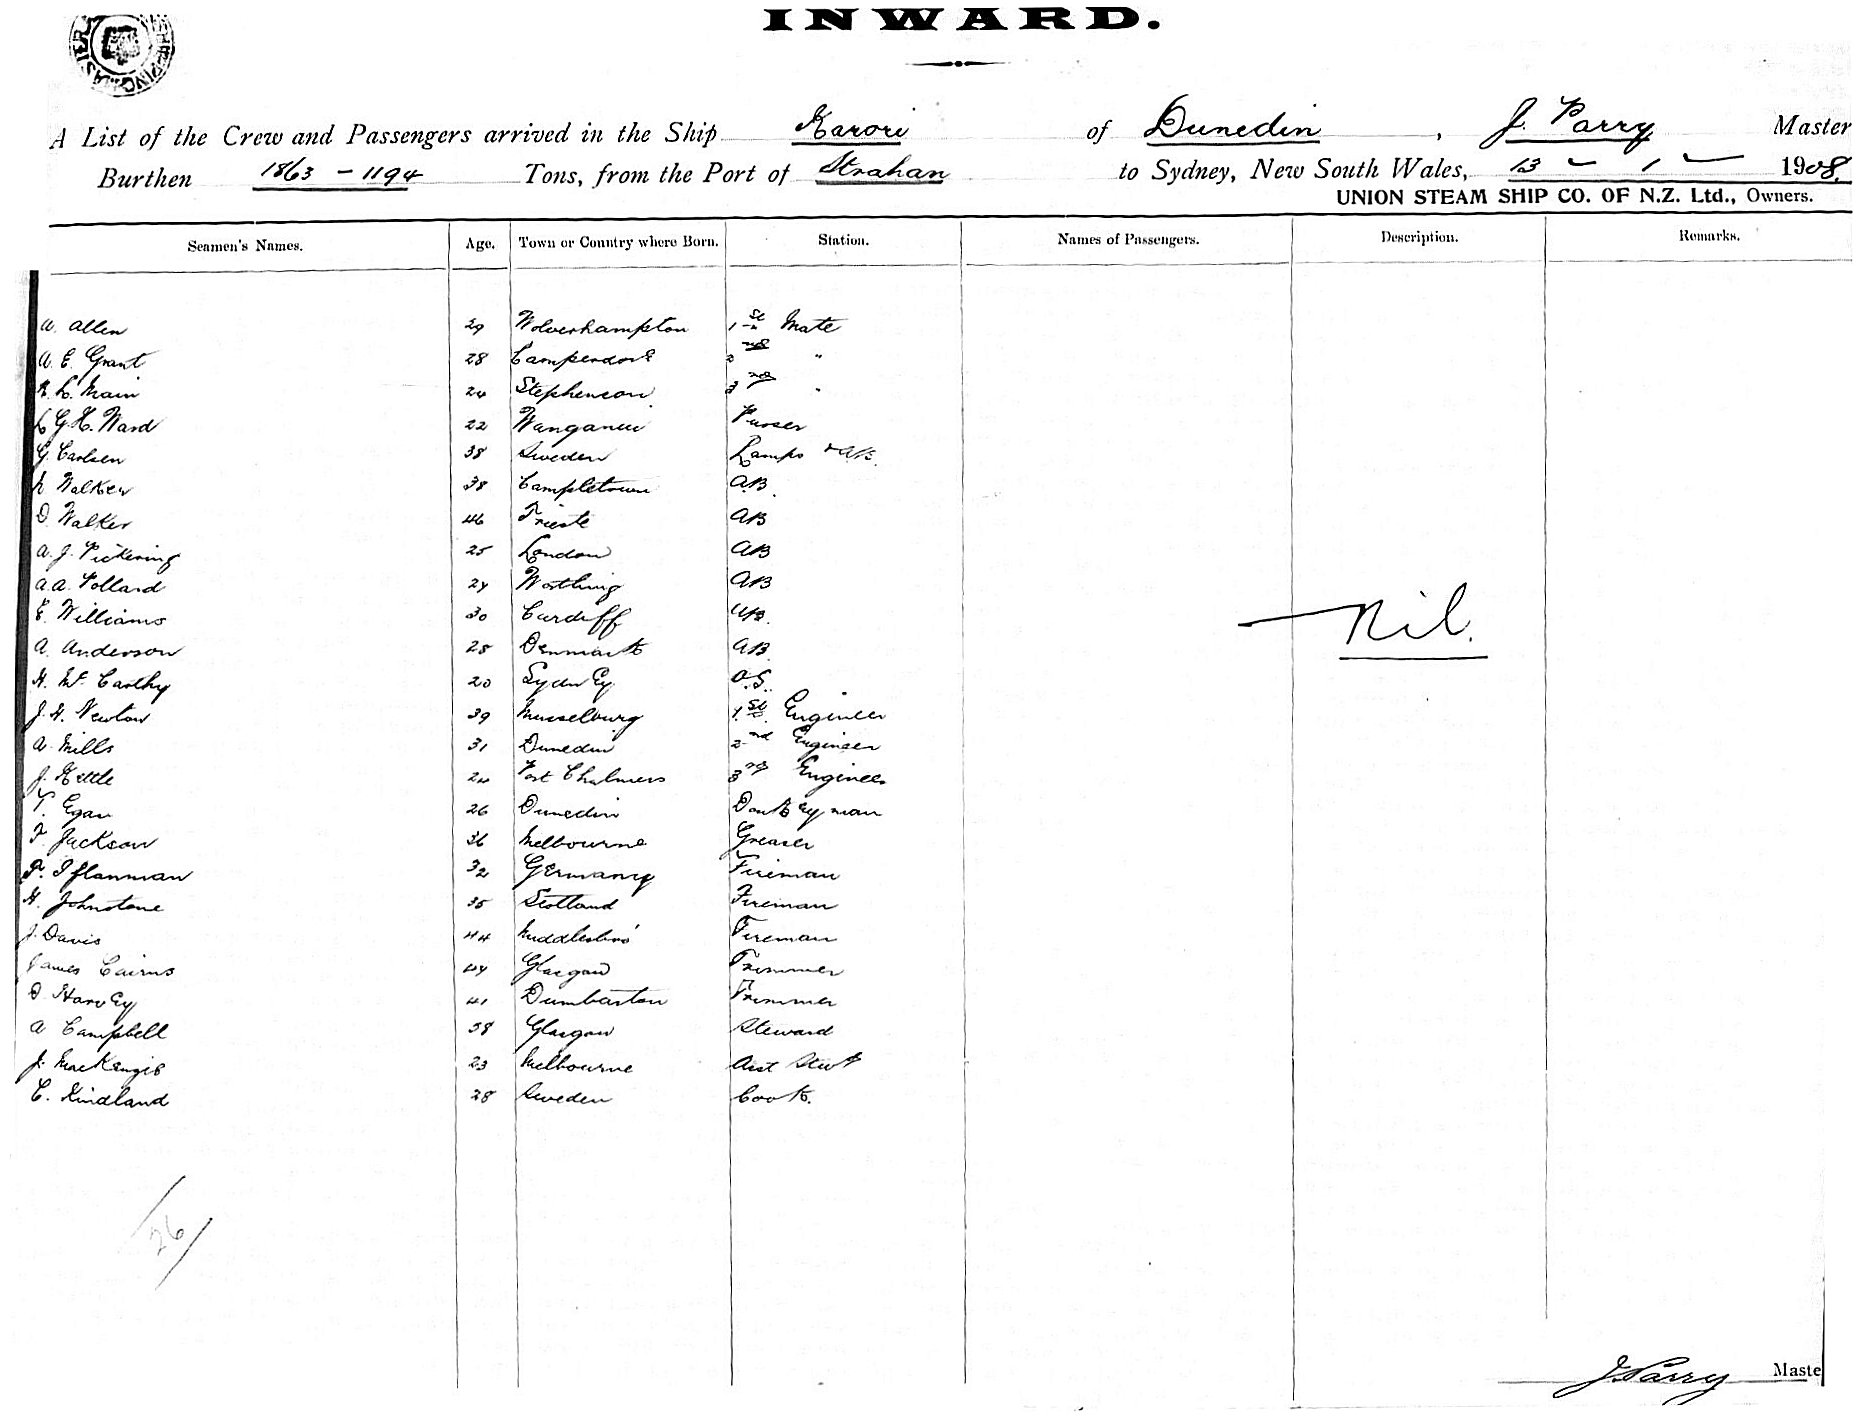 INWARD.
A List of the Crew and Passengers arrived in the Ship Karori of Dunedin, J. Parry Master
Burthen 1863 - 1194 Tons, from the Port of Strahan to Sydney, New South Wales, 13 - 1 - 1908.
UNION STEAM SHIP CO. OF N.Z. Ltd., Owners.
Seamen's Names. Age. Town or Country where Born. Station. Names of Passengers. Description. Remarks.
W. Allen 29 Wolverhampton 1st Mate
A. E. Grant 28 2nd "
L. Main 24 Stephenson 3rd "
G. H. Ward 22 Wanganui Purser
G. Carlsen 38 Sweden Lamps & AB.
Walker 38 Campletown AB.
D. Walker 46 Trieste AB
A. J. Pickering 25 London AB
A. A. Pollard 24 Worthing AB
E. Williams 30 Cardiff AB.
Nil.
A. Anderson 28 Denmark AB
H. Mc Carthy 20 Sydney O.S.
J. H. Newton 39 Musselburg 1st. Engineer
A. Mills 31 Dunedin 2nd Engineer
J. Kettle 24 Port Chalmers 3rd Engineer
T. Egan 26 Dunedin Donkeyman
F. Jackson 36 Melbourne Greaser
32 Germany Fireman
H. Johnstone 35 Scotland Fireman
J. Davis 44 Middlesbro' Fireman
James Cairns 44 Glasgow Trimmer
D. Harvey 41 Dumbarton Trimmer
A Campbell 38 Glasgow Steward
J. MacKenzie 23 Melbourne Asst Stwd
C. Kindland 28 Sweden Cook.
/26/
J. Parry Maste